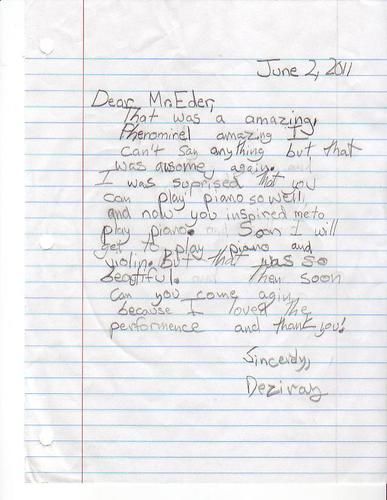 June 2, 2011
Dear Mr. Eder,
That was a amazing,
Pherominel amazing I
can't say anything but that
was awsome again.
I was suprised that you
can play piano so well,
and now you inspired me to
play piano. Soon I will
get to play piano and
violin. But that was so
beatiful. Then soon
can you come agin,
because I loved the
performence and thank you!
Sincerely,
Deziray